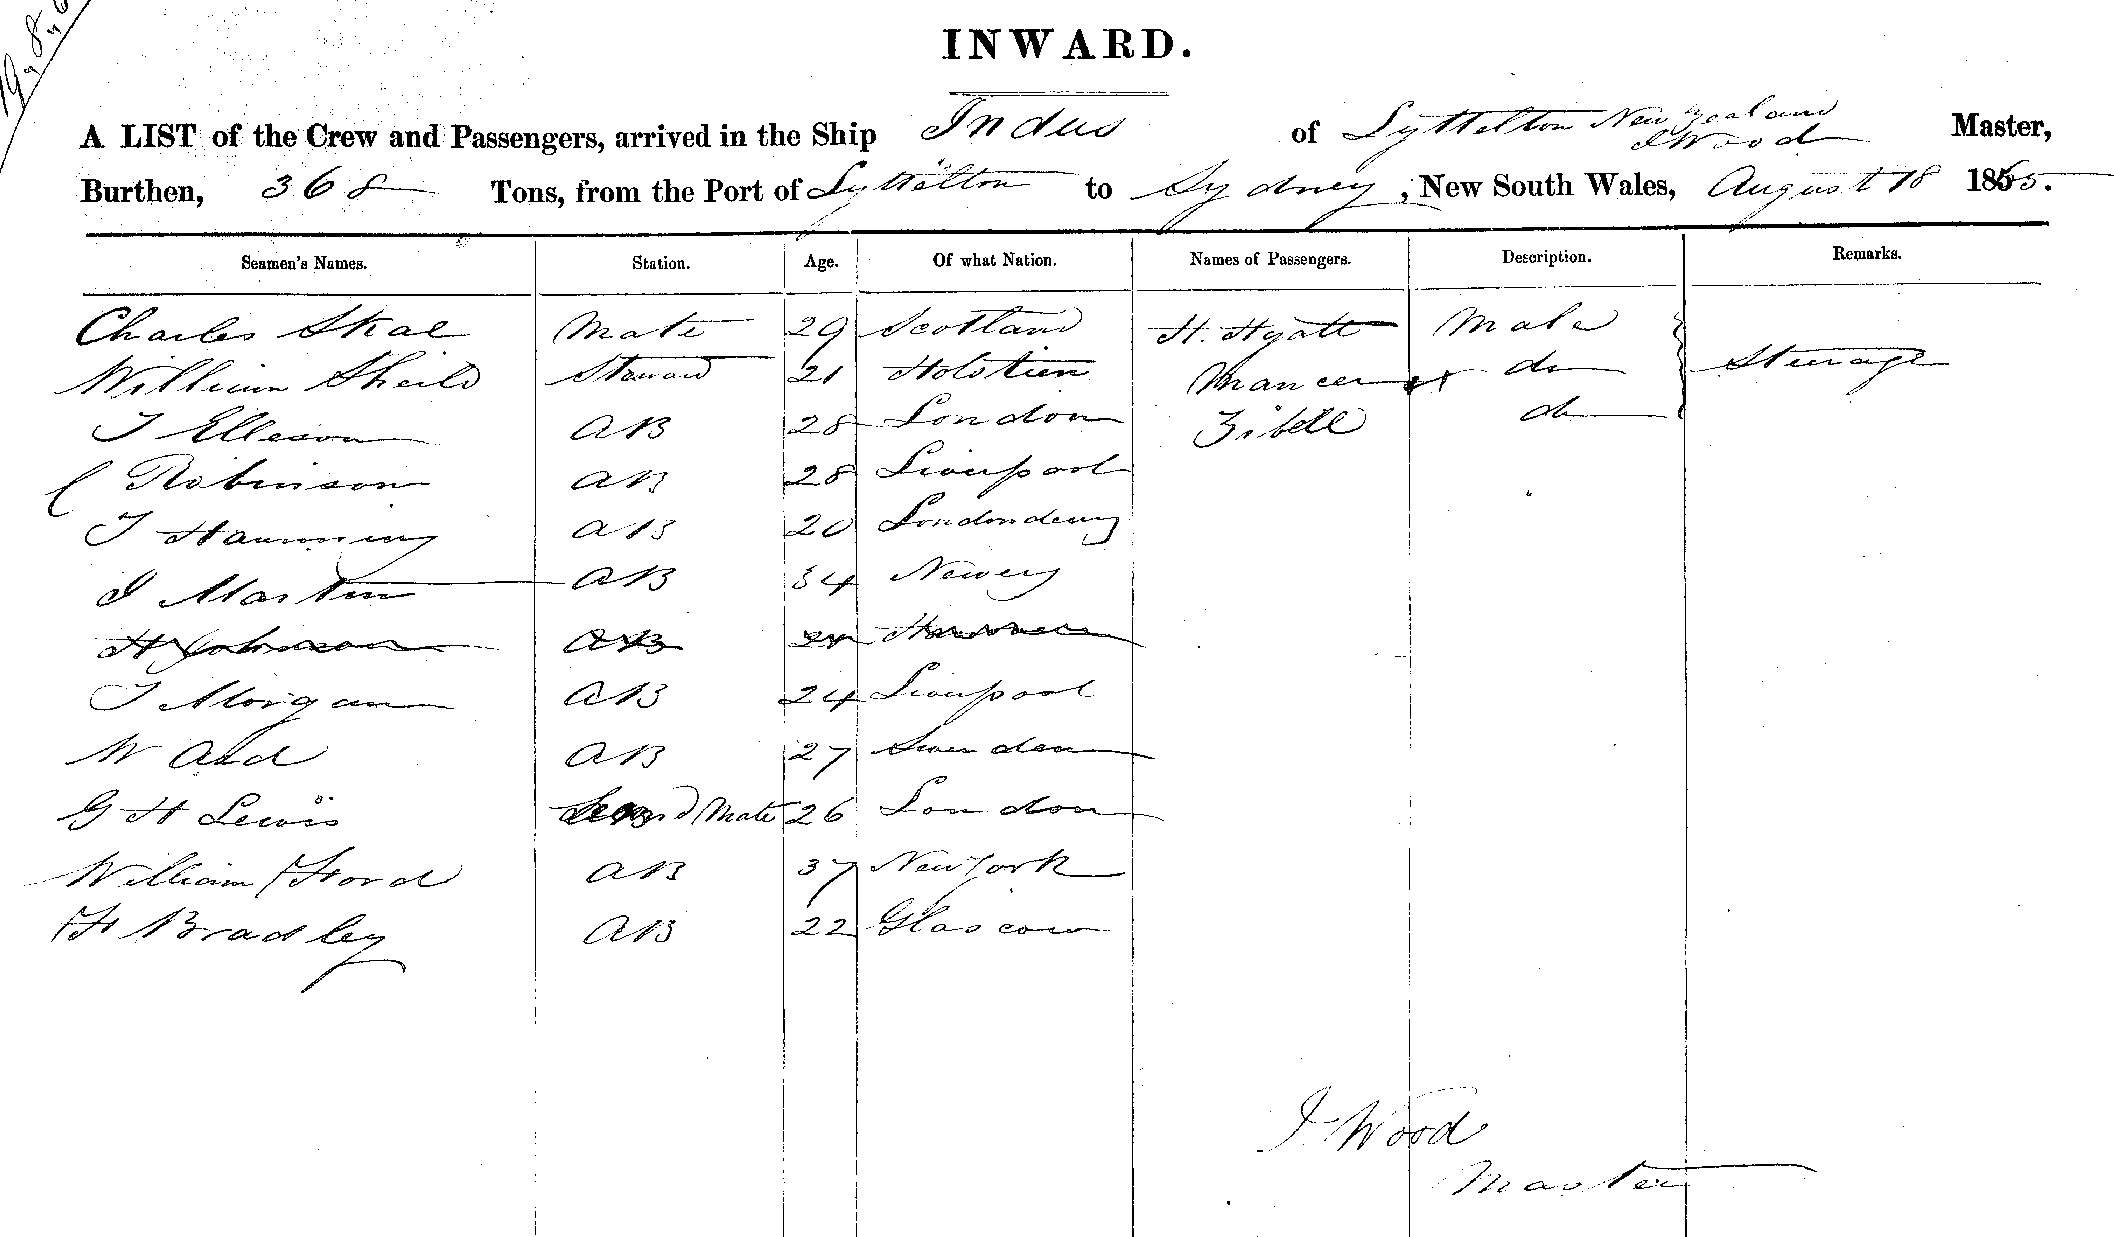 INWARD.
A LIST of the Crew and Passengers, arrived in the Ship Indus of Lyttelton New Zealand J Wood Master,
Burthen, 368 Tons, from the Port of Lyttelton to Sydney, New South Wales, August 18 1865.
Seamen's Names. Station. Age. Of what Nation. Names of Passengers. Description. Remarks.
Charles Skae Mate 29 Scotland H. Hyatt Male
William Sheild Steward 21 Holstien do Steerage
T Elleson AB 28 London do
C Robinson AB 28 Liverpool
T Hamming AB 20 Londonderry
J Martin AB 34 Newery
H Johnson AB
T Morgan AB 24 Liverpool
W AB 27 Sweden
G H Lewis Second Mate 26 London
William Ford AB 37 New York
F Bradley AB 22 Glascow
J Wood
Master